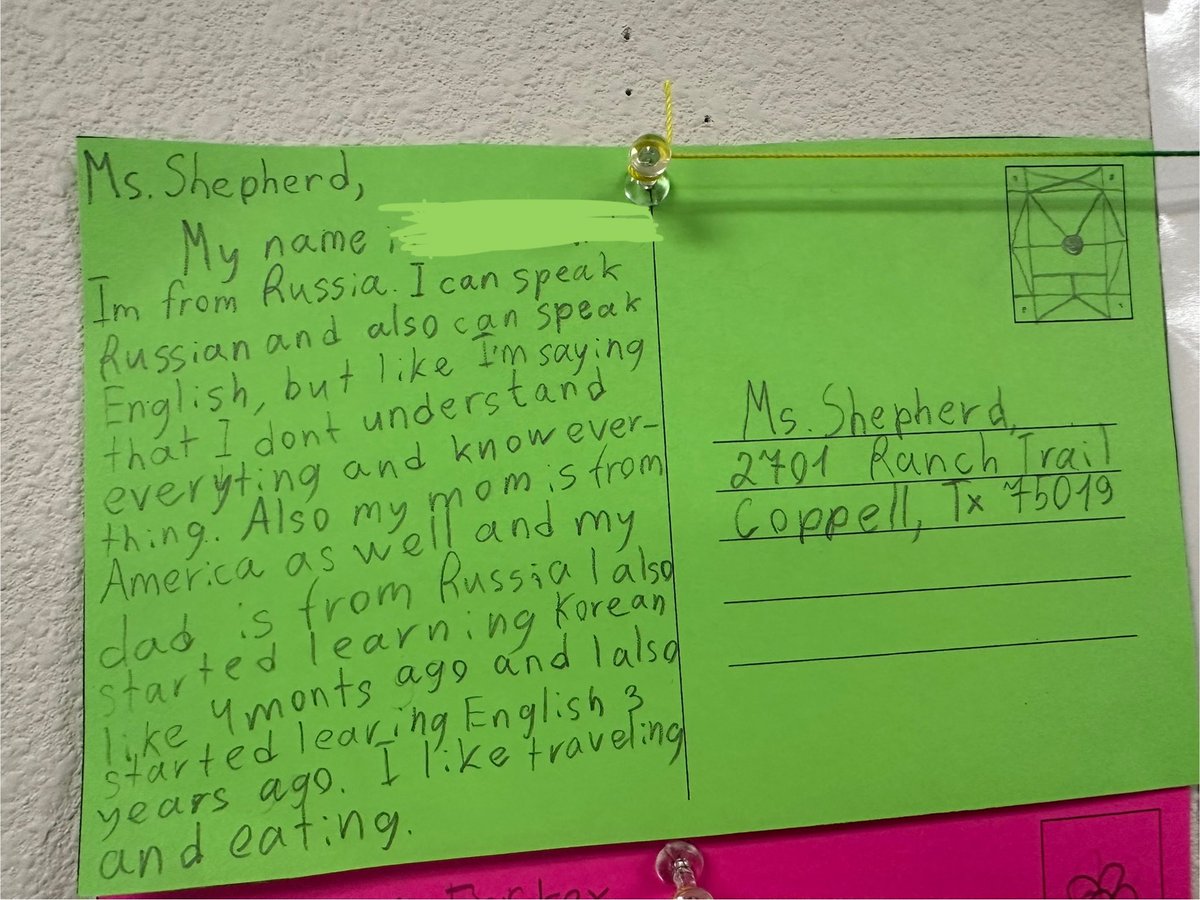 Ms. Shepherd,
My name
Im from Russia. I can speak
Russian and also can speak
English, but like I'm saying
that I dont understand
everyting and know ever-
thing. Also my mom is from
America as well and my
dad is from Russia I also
started learning Korean
like 4 monts ago and I also
started learing English 3
years ago. I like traveling
and eating.
Ms. Shepherd,
2701 Ranch Trail
Coppell, Tx 75019